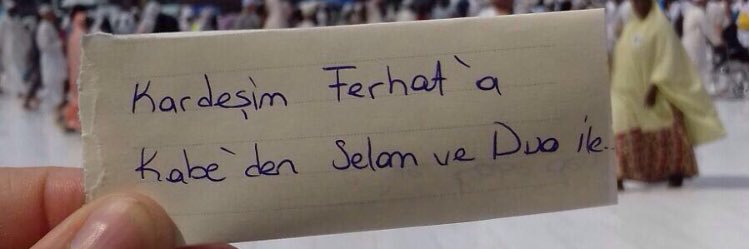 Kardeşim Ferhat'a
Kabe'den Selam ve Dua ile..